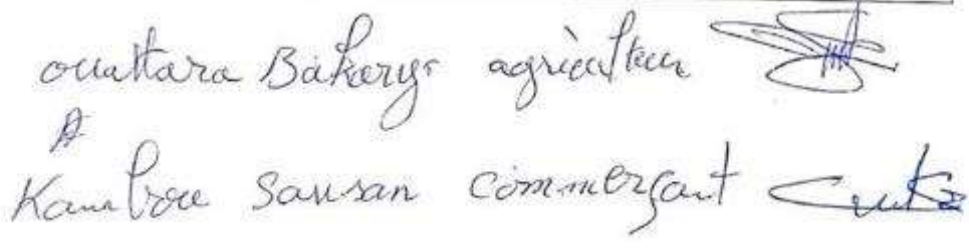 ouattara Bakary agriculteur
Kambou Sansan commerçant